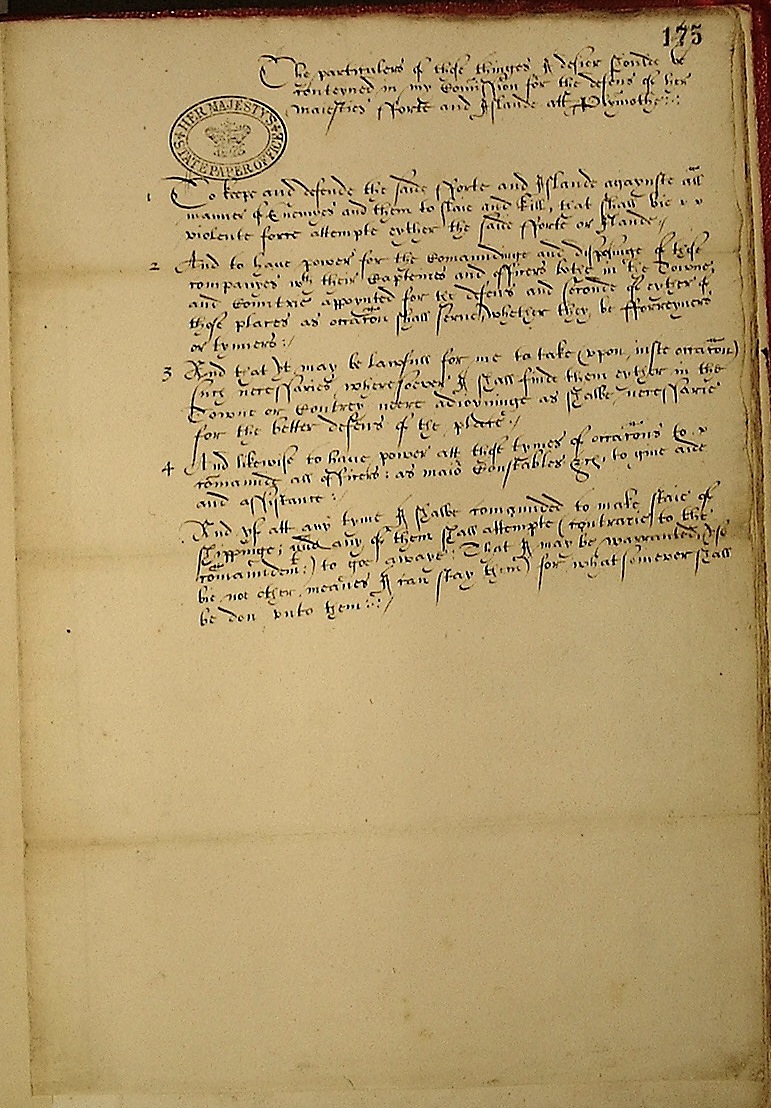 175
The particulers of those thinges I desier should be
conteyned in my Comission for the defens of her
Maiesties fforte and Islande att Plymothe
HER MAJESTY'S
STATE PAPER OFFICE
1 To kepe and defende the saide fforte and Islande agaynste all
manner of Enemyes and them to slaie and kill, that shall bie
violente force attempte eyther the saide fforte or Ilande
2 And to haue power for the Comanndinge and disposinge of those
companyes wth their Capteines and officers bothe in the Towne
and Countrie appoynted for the defens and seconde of eyther of
those places as occation shall serue, whether they be fforreyners
or tynners
3 And that it may be lawfull for me to take (vpon iuste occation)
such necessaries, wheresoever I shall finde them eyther in the
Towne or Contrey neere adioyninge as shalbe necessarie
for the better defens of the place
4 And likewise to haue power att those tymes of occations to
comannde all officers: as maior Constables &c: to giue aide
and assistance
And yf att any tyme I shalbe comannded to make staie of
shippinge; and any of them shall attempte (contrarie to the
comanndemt:) to goe awaye: That I may be warranted (yf
bie noe other meanes I can stay them) for whatsomever shall
be don vnto them